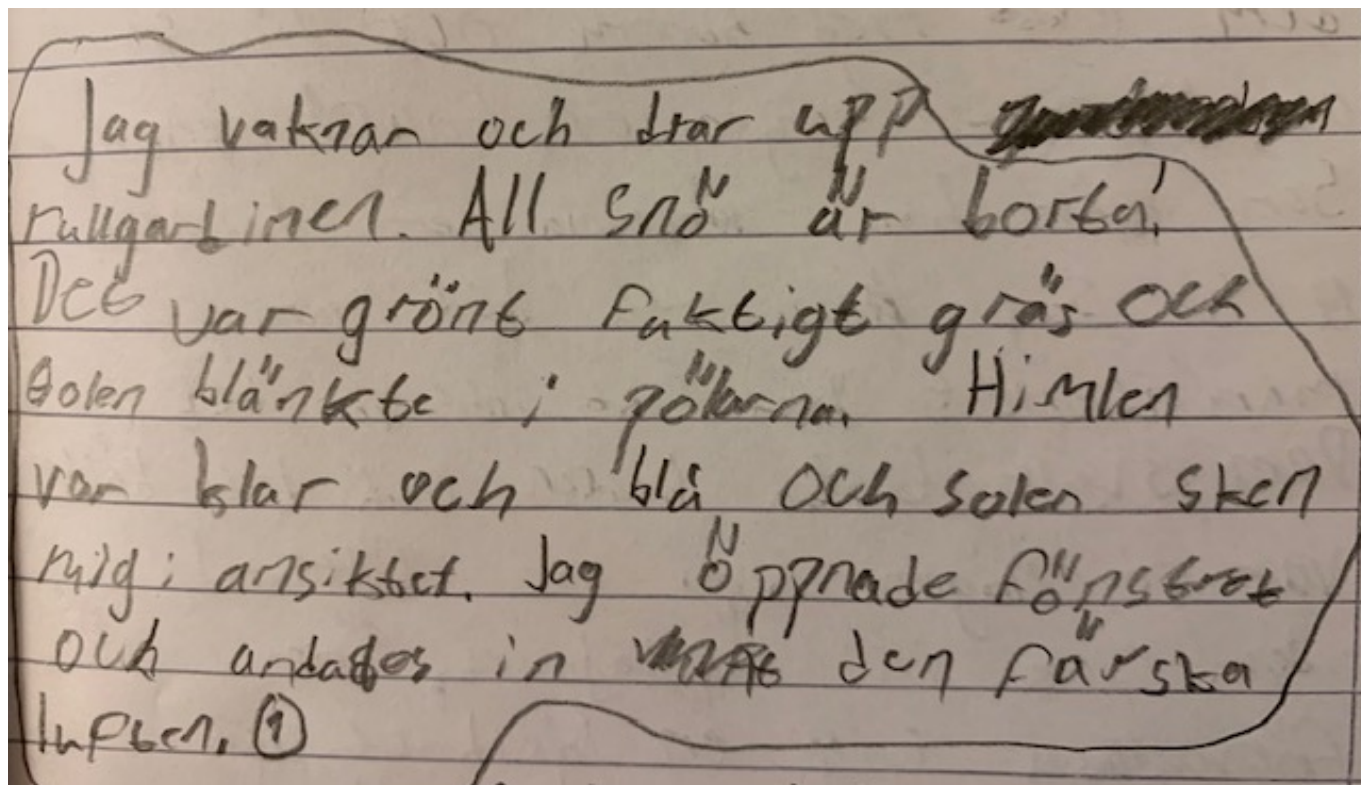 Jag vaknar och drar upp
rullgardinen. All snö är borta.
Det var grönt faktigt gräs och
solen blänkte i pölarna. Himlen
var klar och blå och solen sken
mig i ansiktet. Jag öppnade fönstret
och andades in den färska
luften. 1